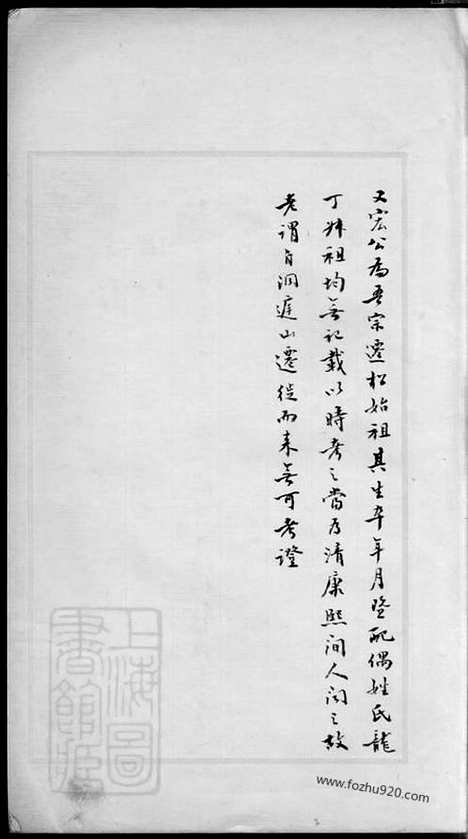 又宏公為吾宗遷松始祖其生卒年月暨配偶姓氏龍
丁妣祖均無記載以時考之當為清康熙間人聞之故
老謂自洞庭山遷徙而來無可考證
上海圖
書館藏
www.fozhu920.com